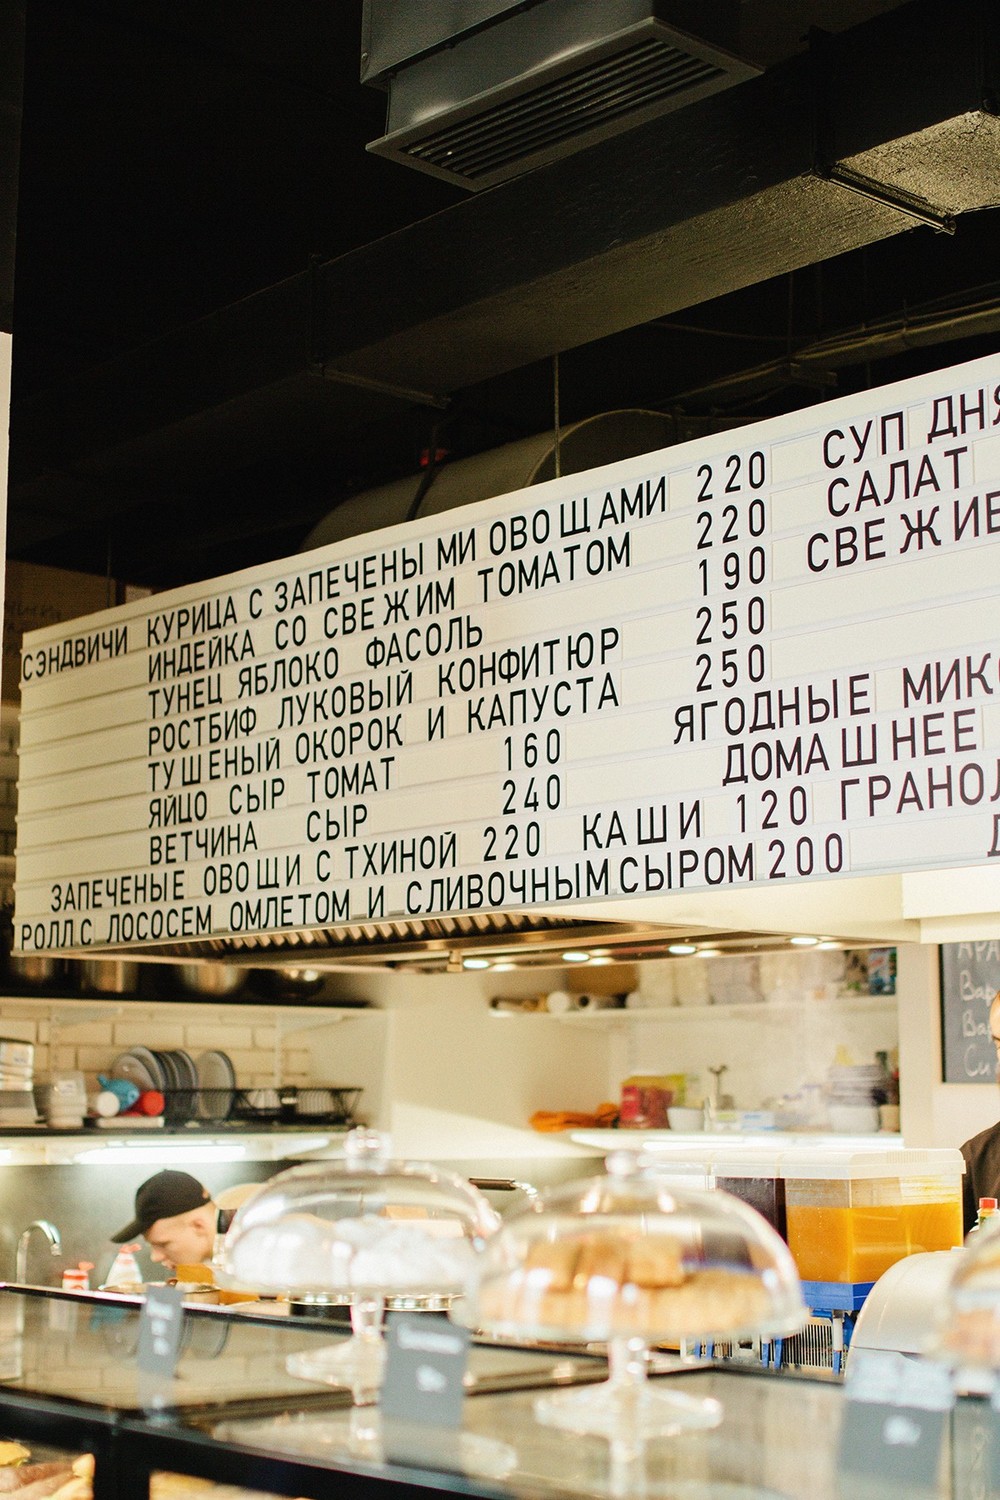 СЭНДВИЧИ КУРИЦА С ЗАПЕЧЕНЫ МИ ОВОЩАМИ 220
ИНДЕЙКА СО СВЕЖИМ ТОМАТОМ 220
ТУНЕЦ ЯБЛОКО ФАСОЛЬ 190
РОСТБИФ ЛУКОВЫЙ КОНФИТЮР 250
ТУШЕНЫЙ ОКОРОК И КАПУСТА 250
ЯЙЦО СЫР ТОМАТ 160
ВЕТЧИНА СЫР 240
ЗАПЕЧЕНЫЕ ОВОЩИ С ТХИНОЙ 220
РОЛЛ С ЛОСОСЕМ ОМЛЕТОМ И СЛИВОЧНЫМ СЫРОМ 200
СУП ДНЯ
САЛАТ
СВЕЖИЕ
ЯГОДНЫЕ МИКС
ДОМАШНЕЕ
КАШИ 120 ГРАНОЛ